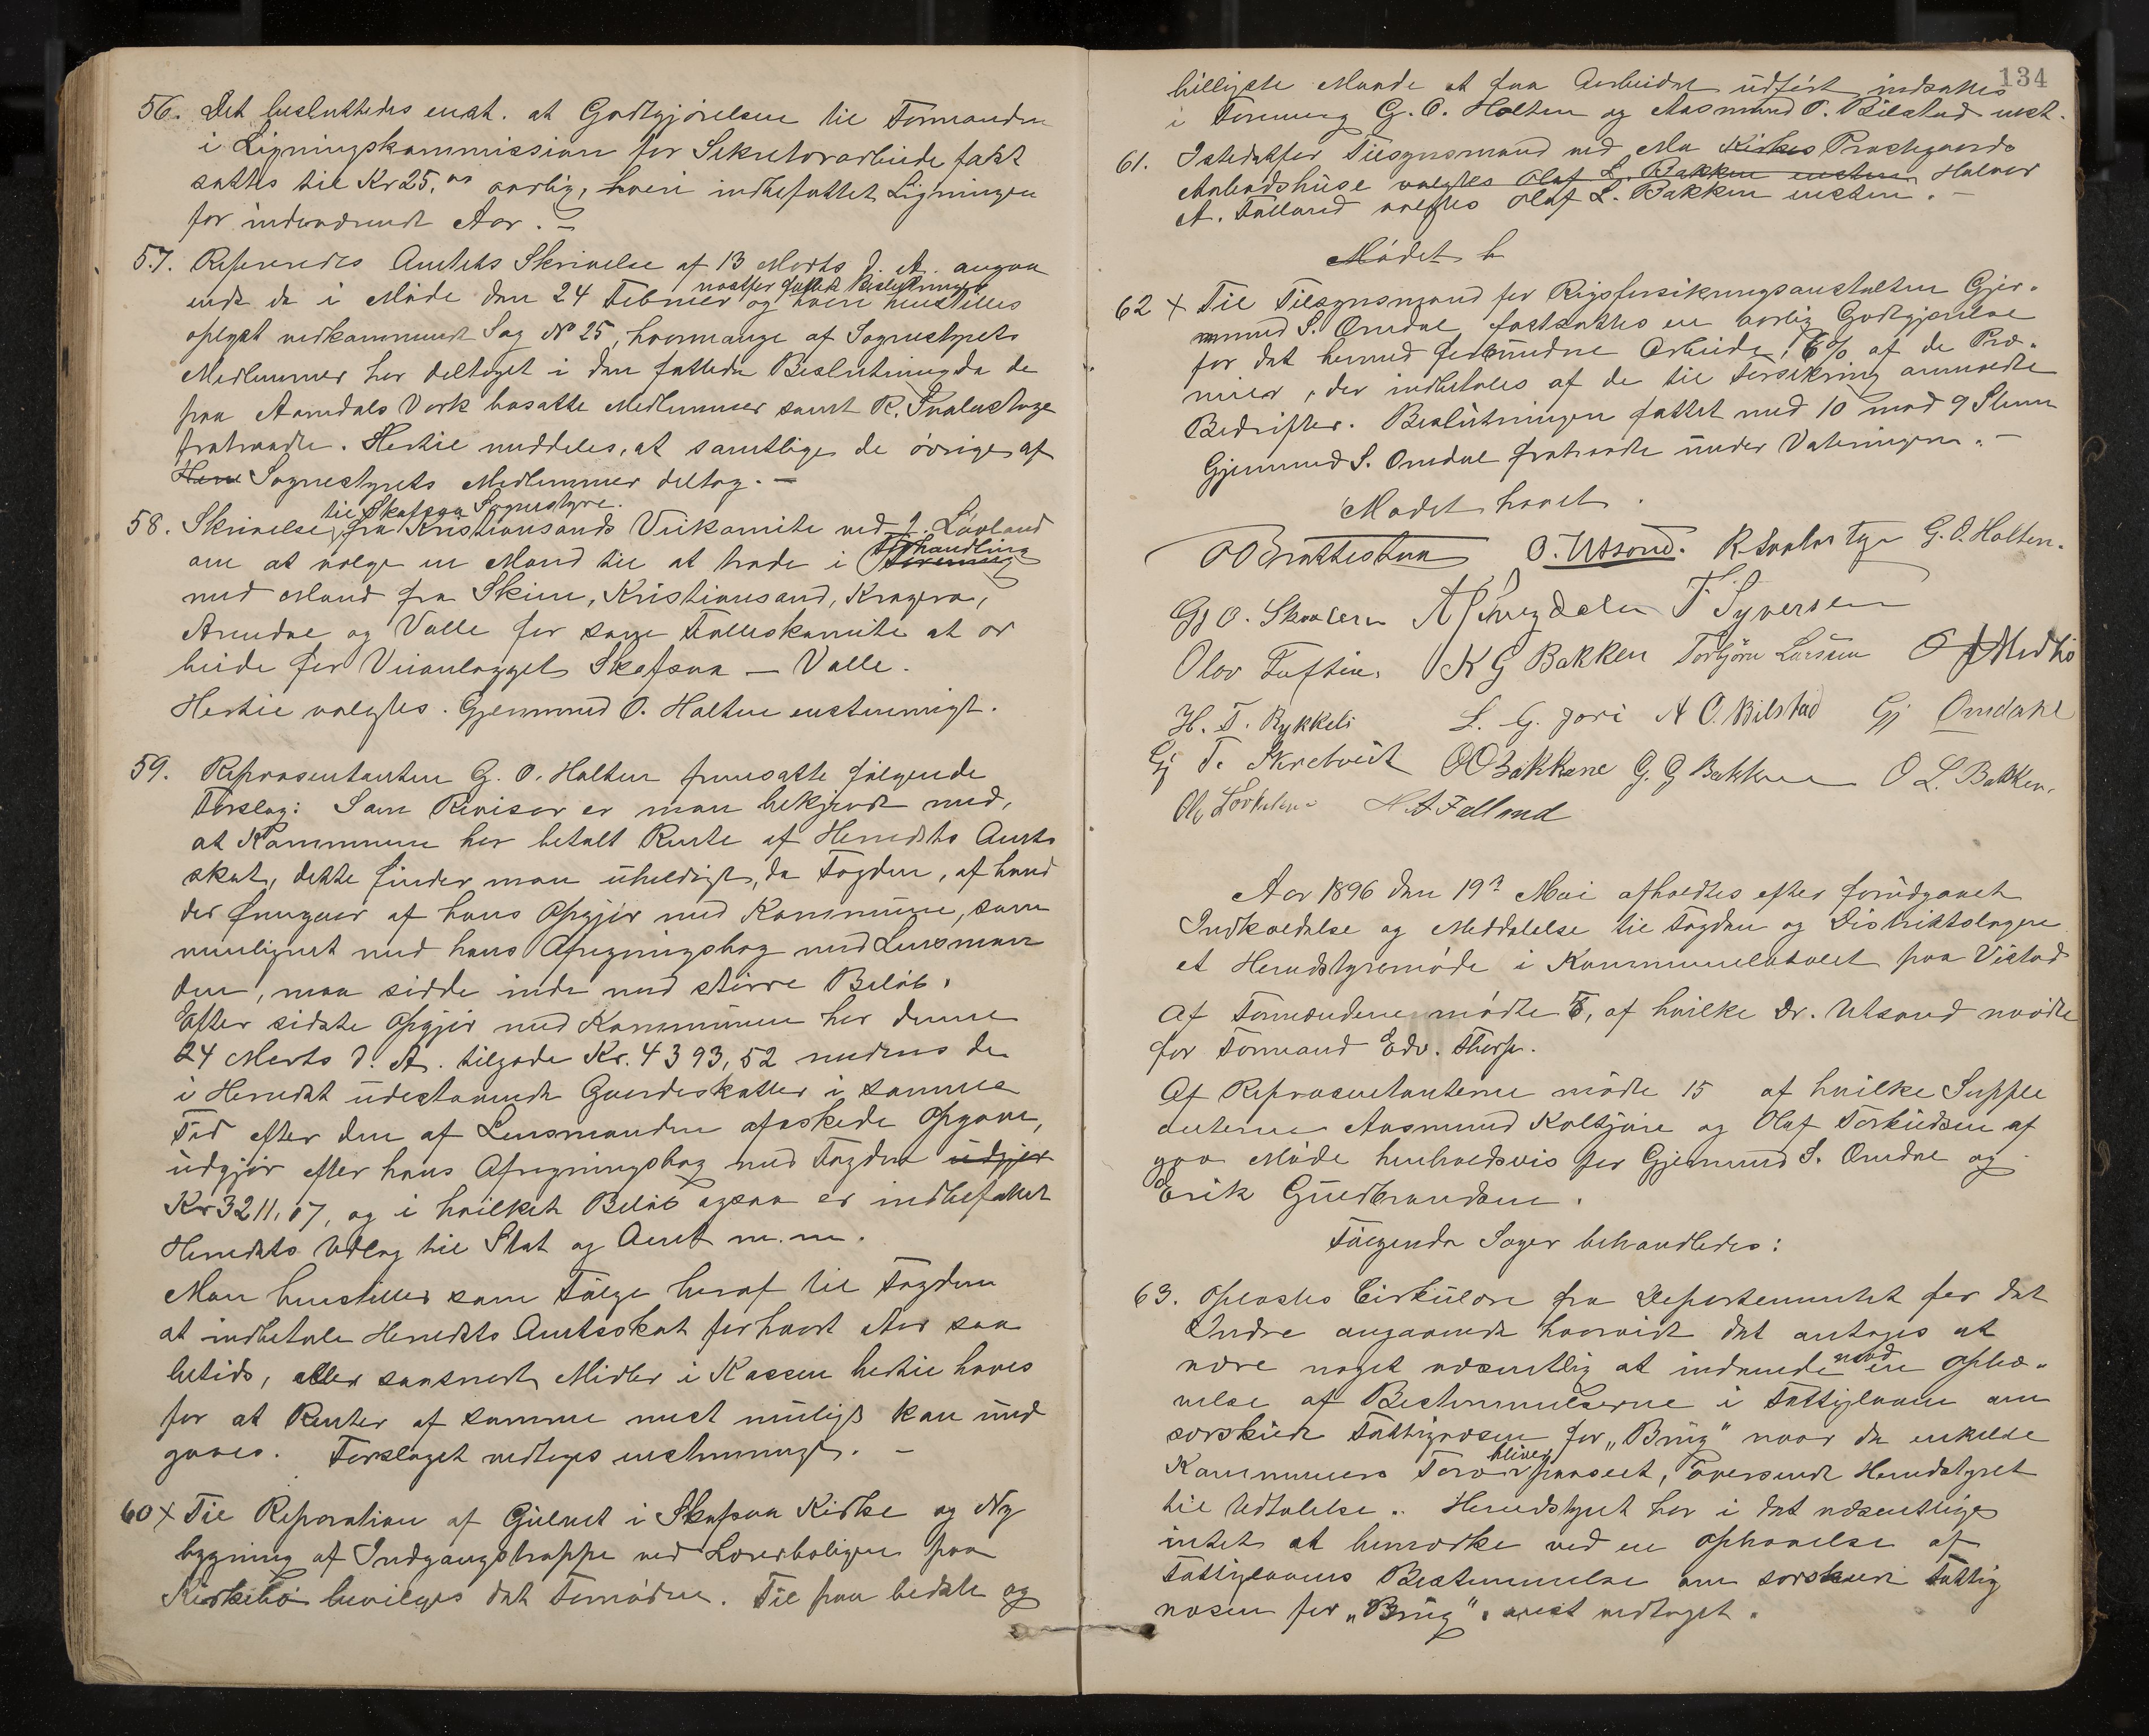 56. Det besluttedes enst. at Godtgjörelsen til Formanden
i Ligningskommissionen for Sekretærarbeide fast
sattes til Kr 25,00 aarlig, hveri indbefattet Ligningen
for indeværende Aar. –
57. Refereredes Amtets Skrivelse af 13 Marts d. A. angaa
nostfer fattet Beslutninger
ende de i Möde den 24 Februar og hveri henstilles
oplyst vedkommende Sag No 25, hvormange af Sognestyrets
Medlemmer har deltaget i den fattede Beslutning da de
paa Aamdals Værk bosatte Medlemmer samt R. Svalastoge
fratraadte. Hertil meddeles, at samtlige de övrige af
Herr Sognestyrets Medlemmer deltog. –
til Skafsaa Sognestyre.
58. Skrivelse fra Kristiansands Veikomite ved J. Lövland
Forhandling
om at vælge en Mand til at træde i Forening
med Mænd fra Skien, Kristiansand, Kragerø,
Arendal og Valle for som Fælleskomite at ar
beide for Veianlægget Skafsaa – Valle.
Hertil valgtes Gjermund O. Holten enstemmigt.
59. Repræsentanten G. O. Holten fremsatte fölgende
Forslag: Som Revisor er man bekjendt med,
at Kommunen har betalt Rente af Herredets Amts
skat, dette finder man uheldigt, da Fogden, af hvad
der fremgaar af hans Opgjör med Kommunen, sam
menlignet med hans Afregningsbog med Lensman
den, maa sidde inde med större Belöb.
Efter sidste Opgjör med Kommunen har denne
24 Marts d. A. tilgode Kr. 4393,52 medens de
i Herredet udestaaende Gaardeskatter i samme
Tid efter den af Lensmanden afæskede Opgave,
udgjör efter hans Afregningsbog med Fogden udgjør
Kr 3211,07, og i hvilket Belöb ogsaa er indbefattet
Herredets Udlæg til Stat og Amt m.m.
Man henstiller som Fölge heraf til Fogden
at indbetale Herredets Amtsskat for hvert Aar saa
betids, eller saasnart Midler i Kassen hertil haves
for at Renter af samme mest muligt kan und
gaaes. Forslaget vedtoges enstemmigt. –
60 × Til Reparation af Gulvet i Skafsaa Kirke og Ny
bygning af Indgangstrappe ved Lærerboligen paa
Kirkebö bevilges det Fornödne. Til paa bedste og
134
billigste Maade at faa Arbeidet udfört indsattes
i Forening G. O. Holten og Aasmund O. Bilstad enst.
61. Istedetfor Tilsynsmand ved Mo Kirkes Præstegaards
Aabodshuse valgtes Olaf L. Bakken enstem. Halvor
A. Falland valgtes Olaf L. Bakken enstem. –
Mödet h
62 × Til Tilsynsmand for Rigsforsikringsanstalten Gjer-
mund S. Omdal fastsattes en aarlig Godtgjørelse
for det hermed forbundne Arbeide, 6% af de Præ-
mier, der indbetales af de til Forsikring anmeldte
Bedrifter. Beslutningen fattet med 10 mod 9 Stem
Gjermund S. Omdal fratraadte under Voteringen. –
Mödet hævet.
O O Brattestaa O. Utsond. R Svalastoge G. O. Holten.
Gj O. Skaalen A Smeddalen T. Syversen
Olav Tuftin. K G Bakken Torbjörn Larsson O J Medbö
H. T. Rykkeli L. G. Jore A O. Bilstad Gj Omdahl
Gj T. Skretveit O O Bakkane G. G Bakken O L. Bakken.
H. A Falland
Aar 1896 den 19de Mai afholdtes efter forudgaaet
Indkaldelse og Meddelelse til Fogden og Distriktslægen
et Herredstyremöde i Kommunelokalet paa Vistad
Af Formændene mödte 5, af hvilke Dr. Utsond mödte
for Formand Edv. Thorp.
Af Repræsentanterne mödte 15 af hvilke Supple
anterne Aasmund Koltjöre og Olaf Torkildsen af
gav Möde henholdsvis for Gjermund S. Omdal og
Erik Guldbrandsen.
Fölgende Sager behandledes:
63. Oplæstes Cirkulære fra Departementet for det
Indre angaaende hvorvidt det antages at
mod
være noget væsentlig at indvende en Ophæ-
velse af Bestemmelserne i Fattigloven om
særskildt Fattigvæsen for „Brug" naar de enkelte
bliver
Kommuners Tarv paaseet, oversendt Herredstyret
til Udtalelse. Herredstyret har i det væsentlige
intet at bemærke ved en Ophævelse af
Fattiglovens Bestemmelse om særskildt Fattig
væsen for „Brug". enst vedtaget.